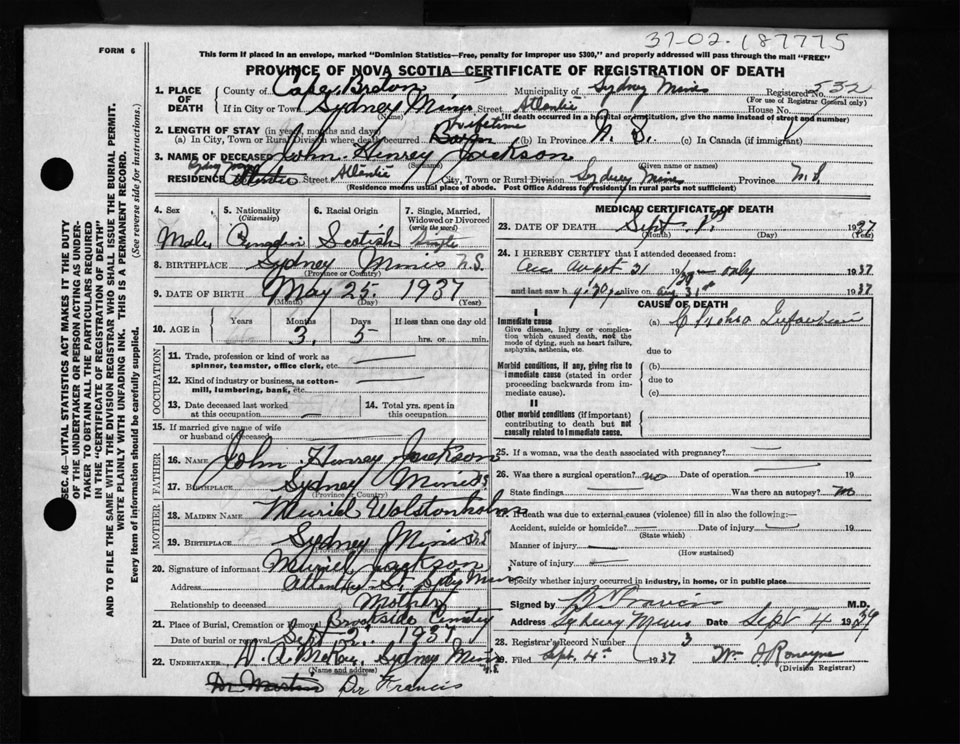 37-02-187775
FORM 6
This form if placed in an envelope, marked "Dominion Statistics—Free, penalty for improper use $300," and properly addressed will pass through the mail "FREE"
PROVINCE OF NOVA SCOTIA—CERTIFICATE OF REGISTRATION OF DEATH
1. PLACE OF DEATH County of Cape Breton Municipality of Sydney Mines Registered No. 532
(For use of Registrar General only)
If in City or Town Sydney Mines Street Atlantic House No.
(Name) (If death occurred in a hospital or institution, give the name instead of street and number)
2. LENGTH OF STAY (in years, months and days)
(a) In City, Town or Rural Division where death occurred Lifetime (b) In Province N. S. (c) In Canada (if immigrant)
3. NAME OF DECEASED John Henrey Jackson
(Surname) (Given name or names)
RESIDENCE Street Atlantic City, Town or Rural Division Sydney Mines Province N.S.
(Residence means usual place of abode. Post Office Address for residents in rural parts not sufficient)
4. Sex Male
5. Nationality (Citizenship)
6. Racial Origin Scotish
7. Single, Married, Widowed or Divorced (write the word) Single
8. BIRTHPLACE Sydney Mines N.S.
(Province or Country)
9. DATE OF BIRTH May 25 1937
(Month) (Day) (Year)
10. AGE in Years Months 3 Days 5 If less than one day old hrs. or min.
OCCUPATION
11. Trade, profession or kind of work as spinner, teamster, office clerk, etc.
12. Kind of industry or business, as cotton-mill, lumbering, bank, etc.
13. Date deceased last worked at this occupation
14. Total yrs. spent in this occupation
15. If married give name of wife or husband of deceased
FATHER
16. NAME John Henrey Jackson
17. BIRTHPLACE Sydney Mines N.S.
(Province or Country)
MOTHER
18. MAIDEN NAME Muriel Wolstonholm
19. BIRTHPLACE Sydney Mines N.S.
(Province or Country)
20. Signature of informant Muriel Jackson
Address Atlantic St. Mines
Relationship to deceased Mother
21. Place of Burial, Cremation or Removal Brookside Cemetery
Date of burial or removal Sept 2 1937
22. UNDERTAKER Sydney Mines N.S.
(Name and address)
Dr Martin Dr Francis
MEDICAL CERTIFICATE OF DEATH
23. DATE OF DEATH Sept 1st 1937
(Month) (Day) (Year)
24. I HEREBY CERTIFY that I attended deceased from:
August 31 only 1937
and last saw h alive on Aug 31st 1937
CAUSE OF DEATH
I
Immediate cause
Give disease, injury or complication which caused death, not the mode of dying, such as heart failure, asphyxia, asthenia, etc.
(a)
due to
Morbid conditions, if any, giving rise to immediate cause (stated in order proceeding backwards from immediate cause).
(b)
due to
(c)
II
Other morbid conditions (if important) contributing to death but not causally related to immediate cause.
25. If a woman, was the death associated with pregnancy?
26. Was there a surgical operation? no Date of operation 19
State findings Was there an autopsy? no
27. If death was due to external causes (violence) fill in also the following:—
Accident, suicide or homicide? Date of injury 19
(State which)
Manner of injury
(How sustained)
Nature of injury
Specify whether injury occurred in industry, in home, or in public place
Signed by Francis M.D.
Address Sydney Mines Date Sept 4 1939
28. Registrar's Record Number 3
29. Filed Sept. 4th 1937 Wm J Ronayne
(Division Registrar)
SEC. 46—VITAL STATISTICS ACT MAKES IT THE DUTY
OF THE UNDERTAKER OR PERSON ACTING AS UNDER-
TAKER TO OBTAIN ALL THE PARTICULARS REQUIRED
IN THE "CERTIFICATE OF REGISTRATION OF DEATH"
AND TO FILE THE SAME WITH THE DIVISION REGISTRAR WHO SHALL ISSUE THE BURIAL PERMIT.
WRITE PLAINLY WITH UNFADING INK. THIS IS A PERMANENT RECORD.
Every item of information should be carefully supplied. (See reverse side for instructions.)